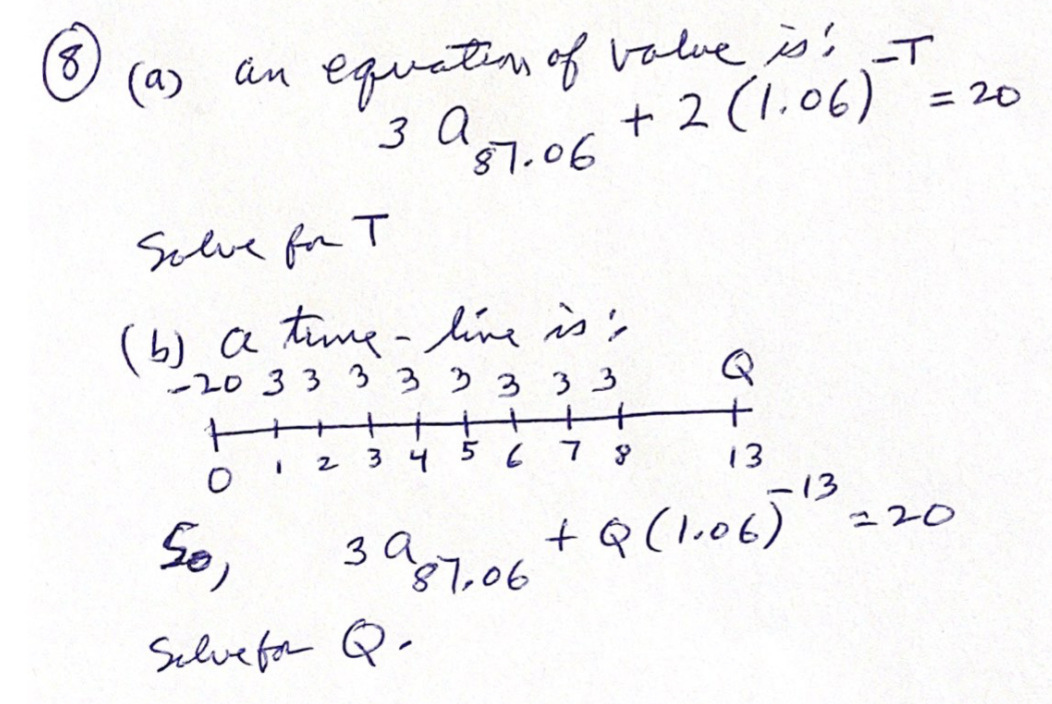 ⑧ (a) an equation of value is:
3 a 8⌉.06 + 2 (1.06)^-T = 20
Solve for T
(b) a time-line is:
-20 3 3 3 3 3 3 3 3 Q
0 1 2 3 4 5 6 7 8 13
So, 3 a 8⌉.06 + Q (1.06)^-13 = 20
Solve for Q.